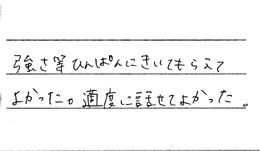 強さ等ひんぱんにきいてもらえて
よかった。適度に話せてよかった。